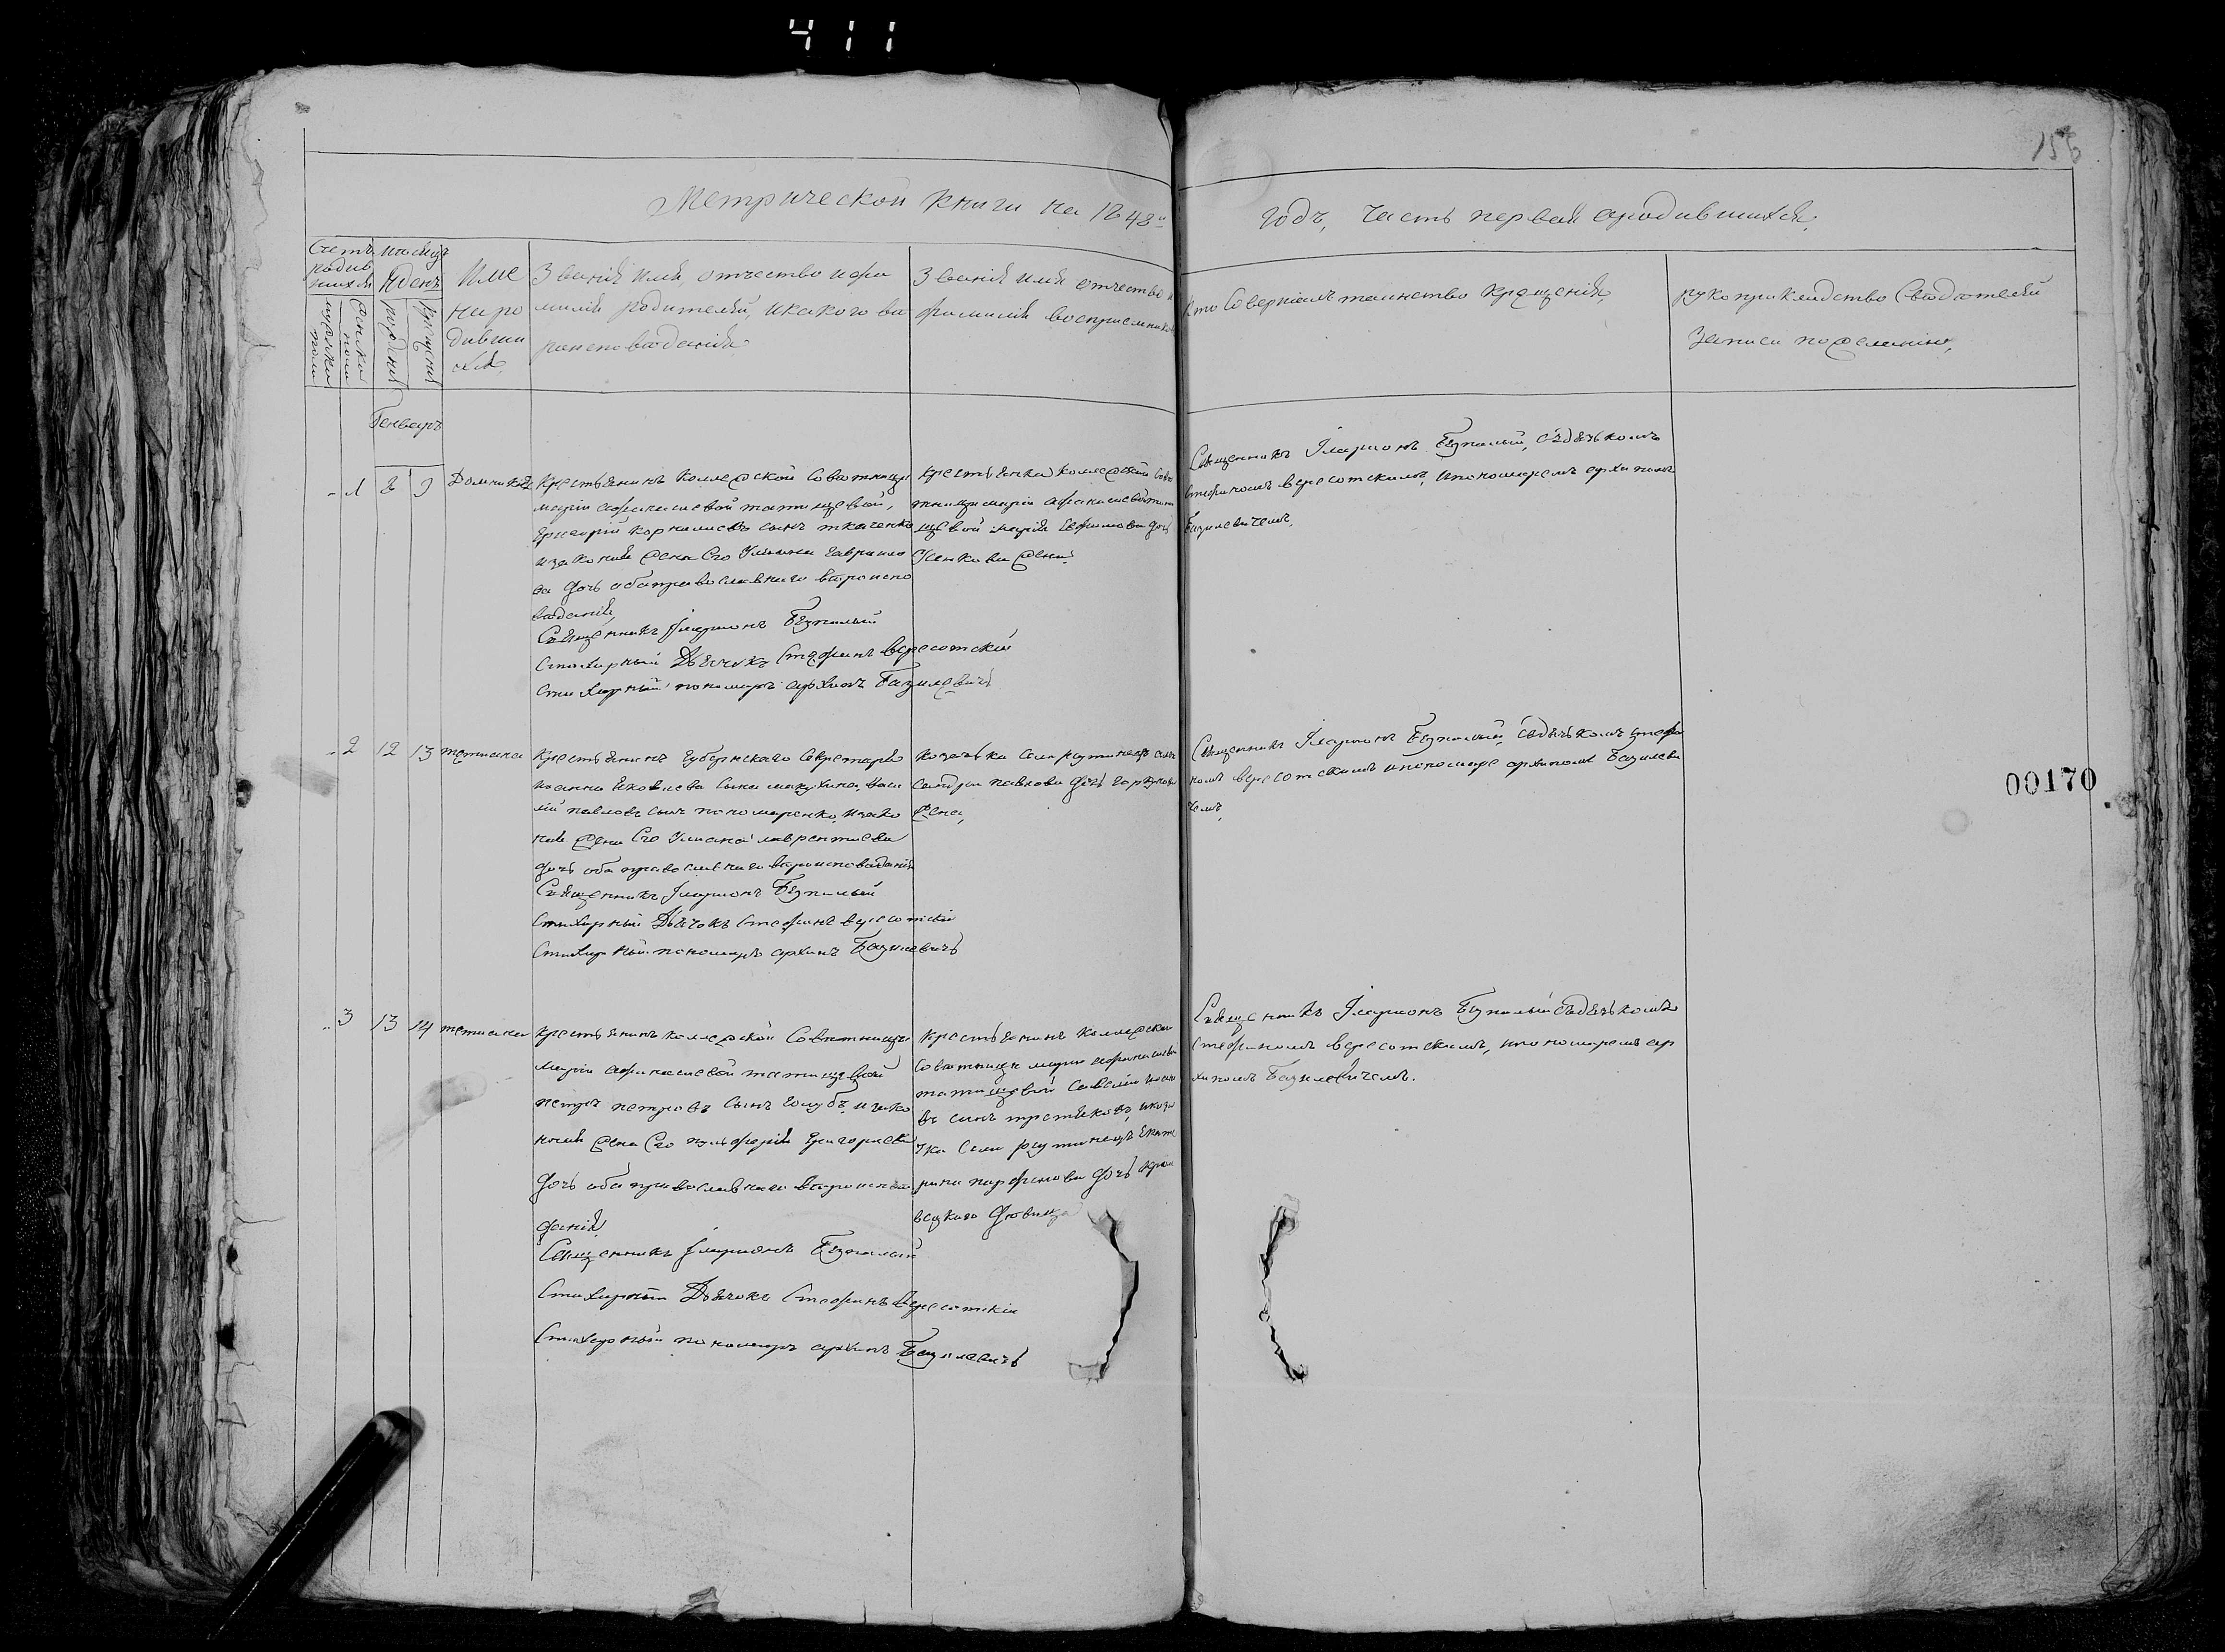 411
155
Метрической книги на 1848й
годъ, часть первая ородившихся,
Счетъ родив шихся
мужеска пола
женска пола
месяцъ и день
рожденія
крещенія
Име на ро дивши хся
Званія имя, отчество и фа
милія родителей, и какого ве
роисповеданія
Званія имя отчество и
фамилія воспріемниковъ
Кто совершалъ таинство крещенія,
рукоприкладство свидетелей
записи по желанію,
Генварь
1 8 9 Домникія
Крестьянинъ коллежской советницы
маріи афанасиевой татищевой,
григорій корнилиевъ сынъ ткаченко
изаконная жена Его Ульяна гаврило
ва дочь оба православнаго вероиспо
веданія,
Священникъ Іларионъ Безпалый
Стихарный Дьячокъ Стефанъ вересотскій
стихарный пономарь архипъ Базилевичъ
крестьянка коллежской Сове
тницы маріи афанасиевой тати
щевой марія Ефимова дочь
Усенкова жена
Священникъ Іларионъ Безпалый, съдьячкомъ
Стефаномъ вересотскимъ, ипономаремъ архипомъ
Базилевичемъ,
2 12 13 татиана
Крестьянинъ Губернскаго Секретаря
иоанна Яковлева сына макухина, васи
лій павловъ сынъ пономаренко, изако
ная жена Его Ульяна лаврентиева
дочь оба православнаго вероисповеданія
Священникъ Іларионъ Безпалый
стихарный Дьячокъ Стефанъ вересотскій
Стихарный пономарь архипъ Базилевичъ
козачька села рутинецъ алек
сандра павлова дочь
жена,
Священникъ Іларионъ Безпалый, съдьячкомъ стефа
номъ вересотскимъ ипономаре архипомъ Базилеви
чемъ,
00170
3 13 14 татиана
крестьянинъ коллежской Советницы
маріи афанасиевой татищевой
петръ петровъ сынъ голубъ, изако
ная жена Его пульферія григориева
дочь оба православнаго вероиспове
данія
Священникъ Іларионъ Безпалый
Стихарный Дьячокъ Стефанъ вересотскій
Стихарный пономарь архипъ Базилевичъ
крестьянинъ коллежской
советницы маріи афанасиевой
татищевой савелій
въ сынъ третяковъ, икоза
чка села рутинецъ Екате
рина парфенова дочь
девица
Священникъ Іларионъ Безпалый съдьячкомъ
Стефаномъ вересотскимъ, ипономаремъ ар
хипомъ Базилевичемъ.